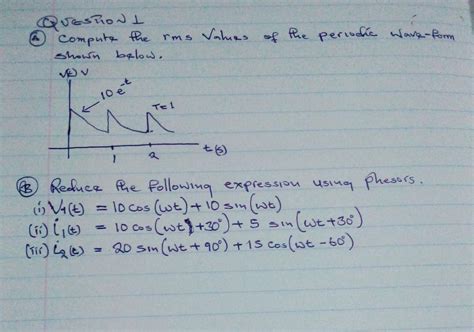 QUESTION 1
(A) Compute the rms values of the periodic wave-form
shown below.
v(t) V
10 e^-t
T=1
1 2 t(s)
(B) Reduce the following expression using phasors.
(i) V₁(t) = 10 cos(wt) + 10 sin(wt)
(ii) i₁(t) = 10 cos(wt + 30°) + 5 sin(wt + 30°)
(iii) i₂(t) = 20 sin(wt + 90°) + 15 cos(wt - 60°)